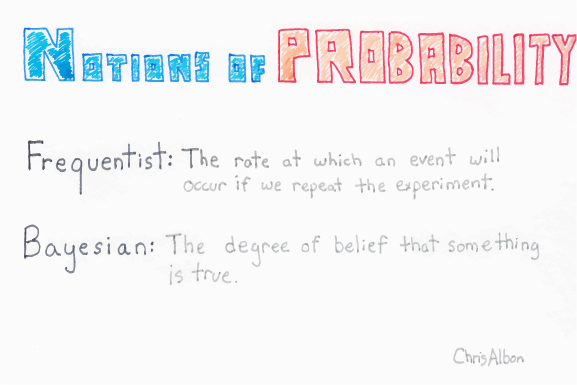 Notions of PROBABILITY
Frequentist: The rate at which an event will
occur if we repeat the experiment.
Bayesian: The degree of belief that something
is true.
ChrisAlbon